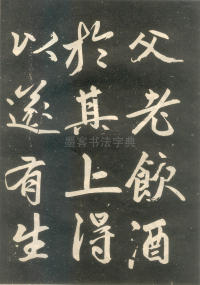 父老飲酒
於其上得
以遂有生
墨客书法字典